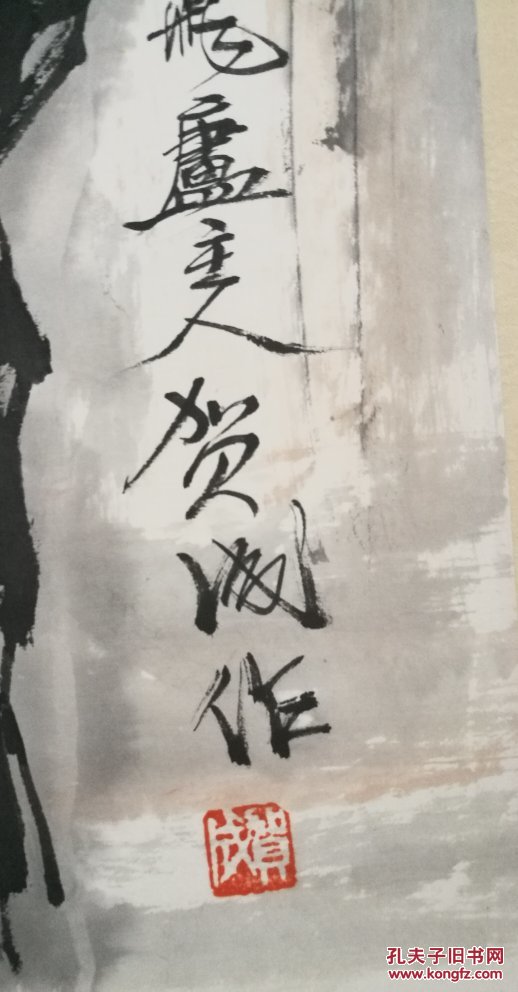 盧主人贺成作
賀成
孔夫子旧书网
www.kongfz.com